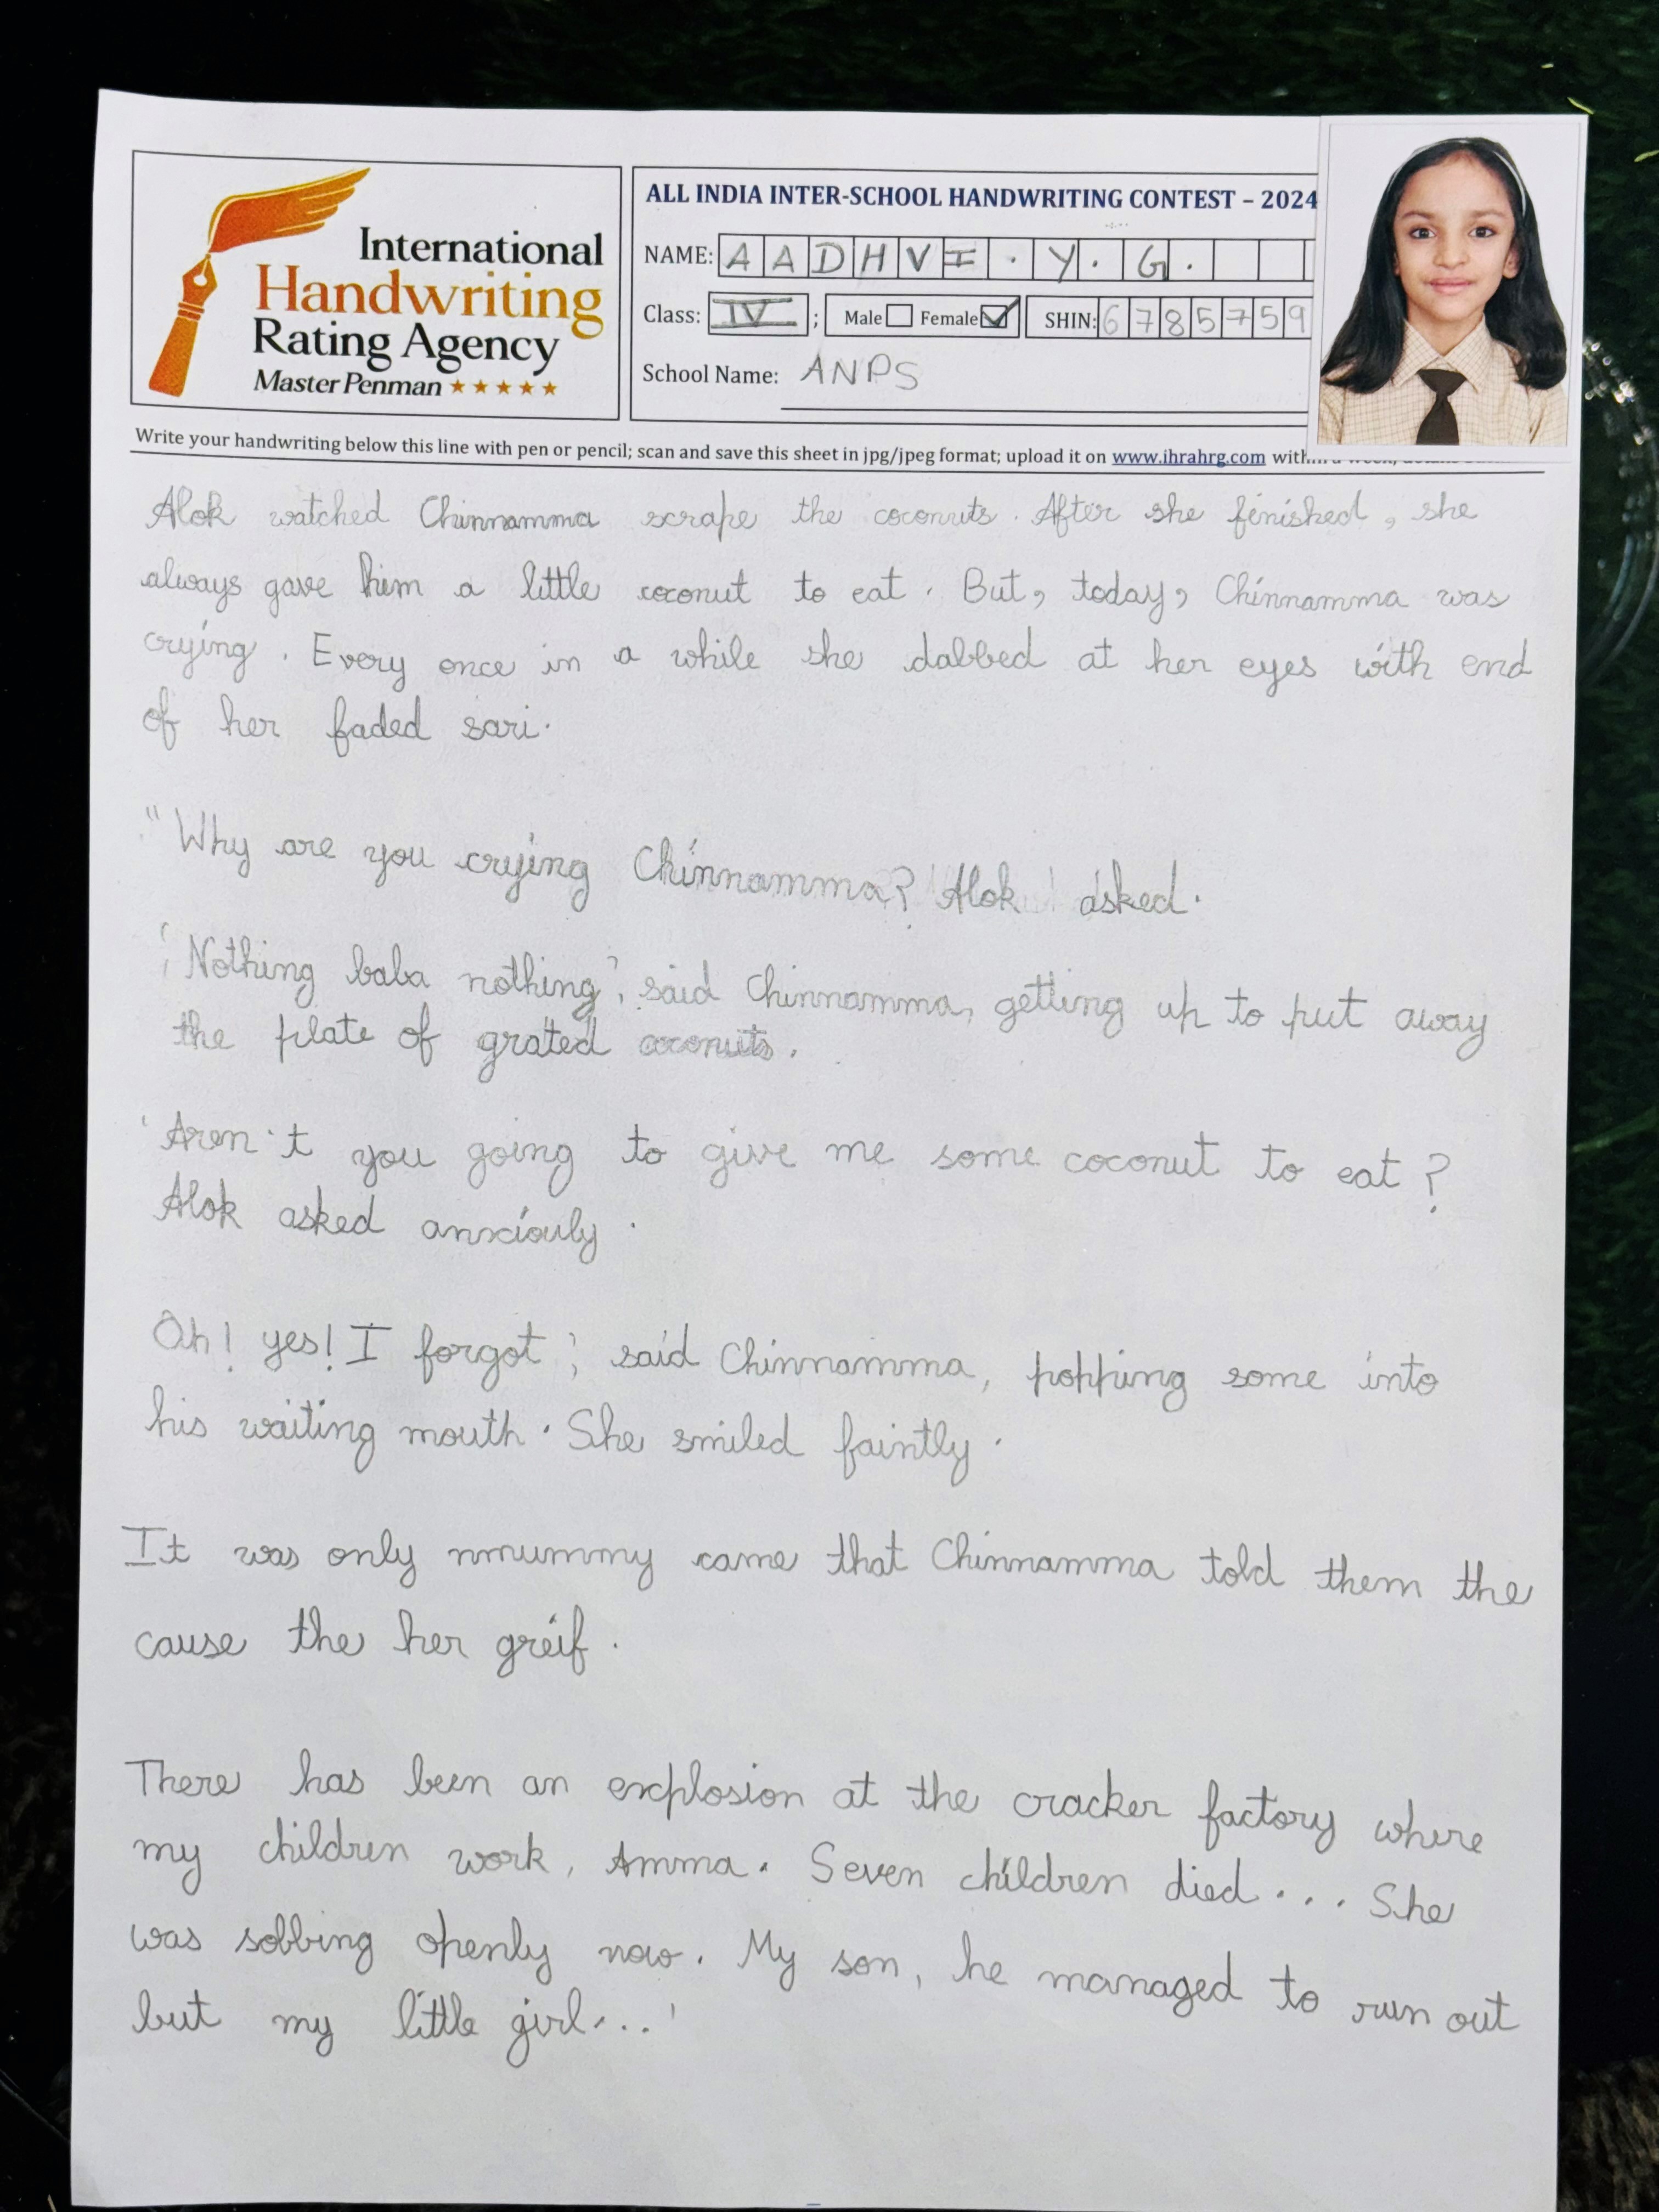 International
Handwriting
Rating Agency
Master Penman
ALL INDIA INTER-SCHOOL HANDWRITING CONTEST – 2024
NAME: AADHVI. Y. G.
Class: IV ; Male Female SHIN: 6785759
School Name: ANPS
Write your handwriting below this line with pen or pencil; scan and save this sheet in jpg/jpeg format; upload it on www.ihrahrg.com
Alok watched Chinnamma scrape the coconuts. After she finished, she
always gave him a little coconut to eat. But, today, Chinnamma was
crying. Every once in a while she dabbed at her eyes with end
of her faded sari.
"Why are you crying Chinnamma? Alok asked.
'Nothing baba nothing', said Chinnamma, getting up to put away
the plate of grated coconuts.
'Aren't you going to give me some coconut to eat?
Alok asked anxiouly.
Oh! yes! I forgot', said Chinnamma, popping some into
his waiting mouth. She smiled faintly.
It was only nmummy came that Chinnamma told them the
cause the her greif.
There has been an explosion at the cracker factory where
my children work, Amma. Seven children died... She
was sobbing openly now. My son, he managed to run out
but my little girl...'